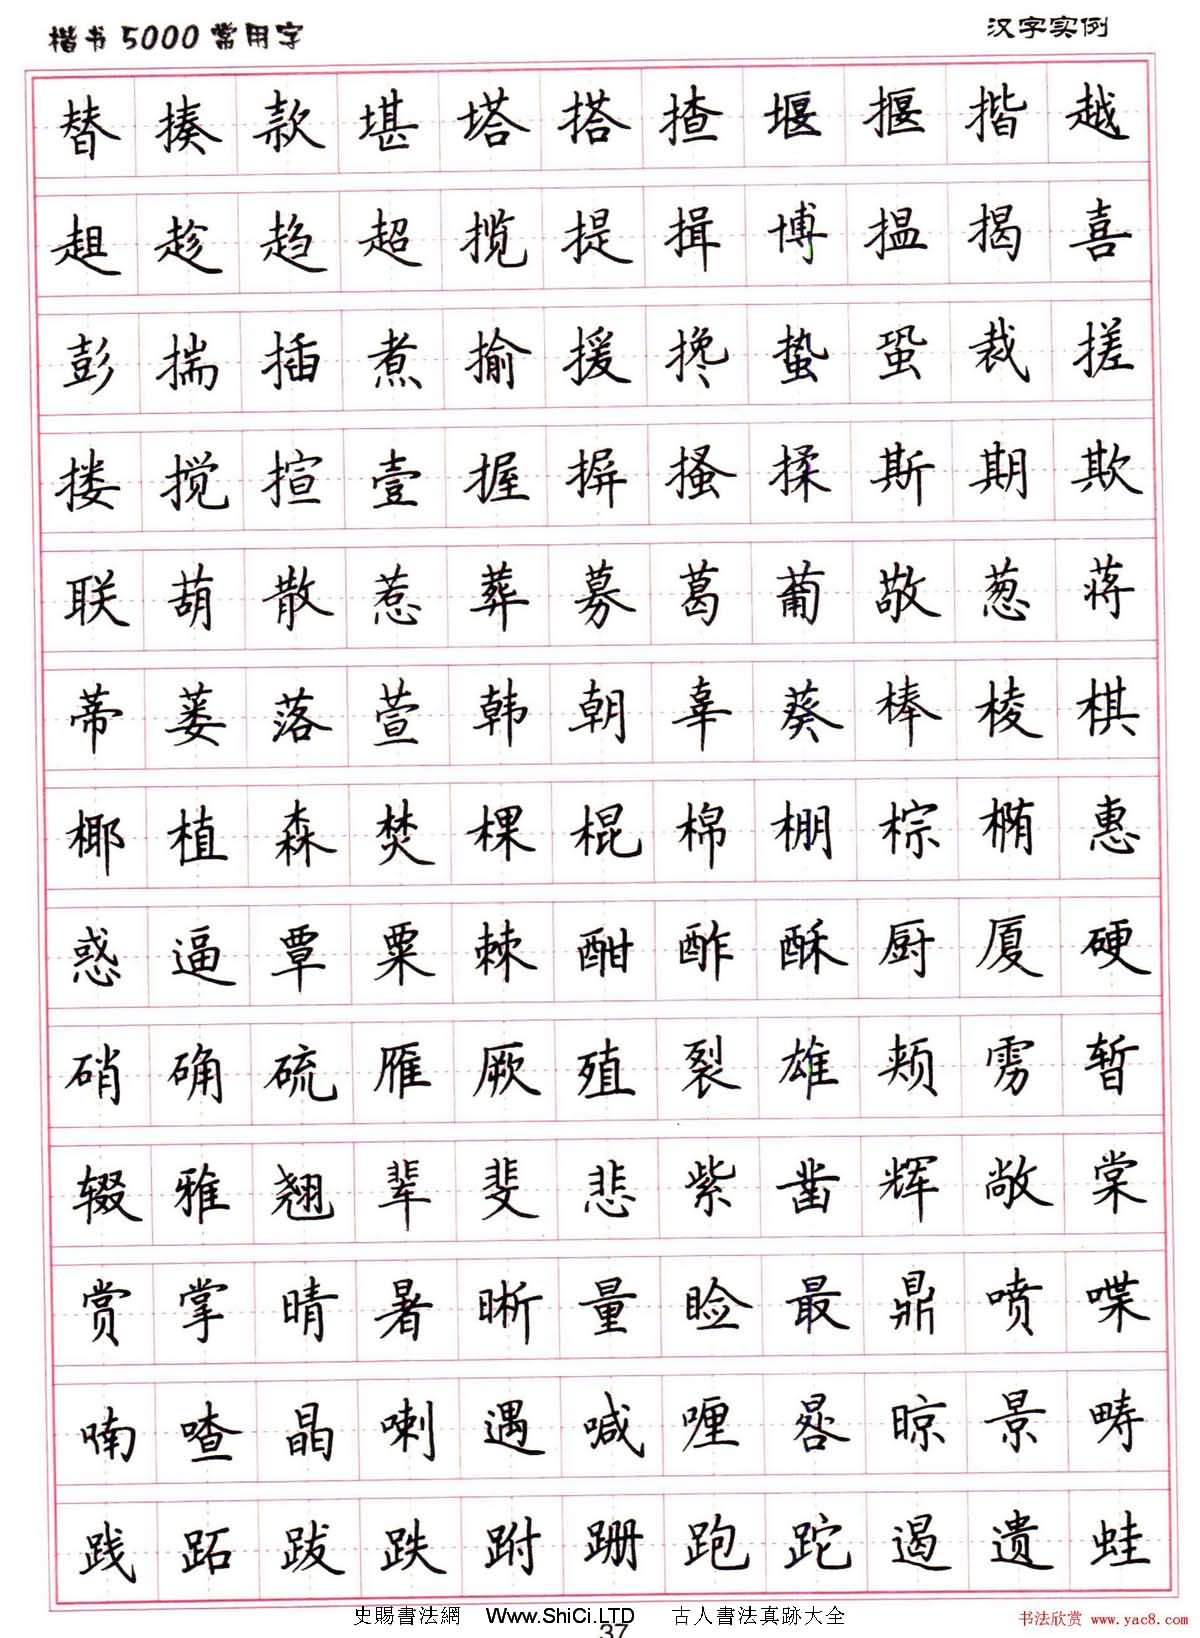 楷书5000常用字 汉字实例
替揍款堪塔搭揸堰揠揩越
趄趁趋超揽提揖博揾揭喜
彭揣插煮揄援搀蛰蛩裁搓
搂搅揎壹握摒搔揉斯期欺
联葫散惹葬募葛葡敬葱蒋
蒂蒌落萱韩朝辜葵棒棱棋
椰植森焚棵棍棉棚棕椭惠
惑逼覃粟棘酣酢酥厨厦硬
硝确硫雁厥殖裂雄颊雳暂
辍雅翘辈斐悲紫凿辉敞棠
赏掌晴暑晰量睑最鼎喷喋
喃喳晶喇遇喊喱晷晾景畴
践跖跋跌跗跚跑跎遏遗蛙
史賜書法網 Www.ShiCi.LTD 古人書法真跡大全
37
书法欣赏 www.yac8.com